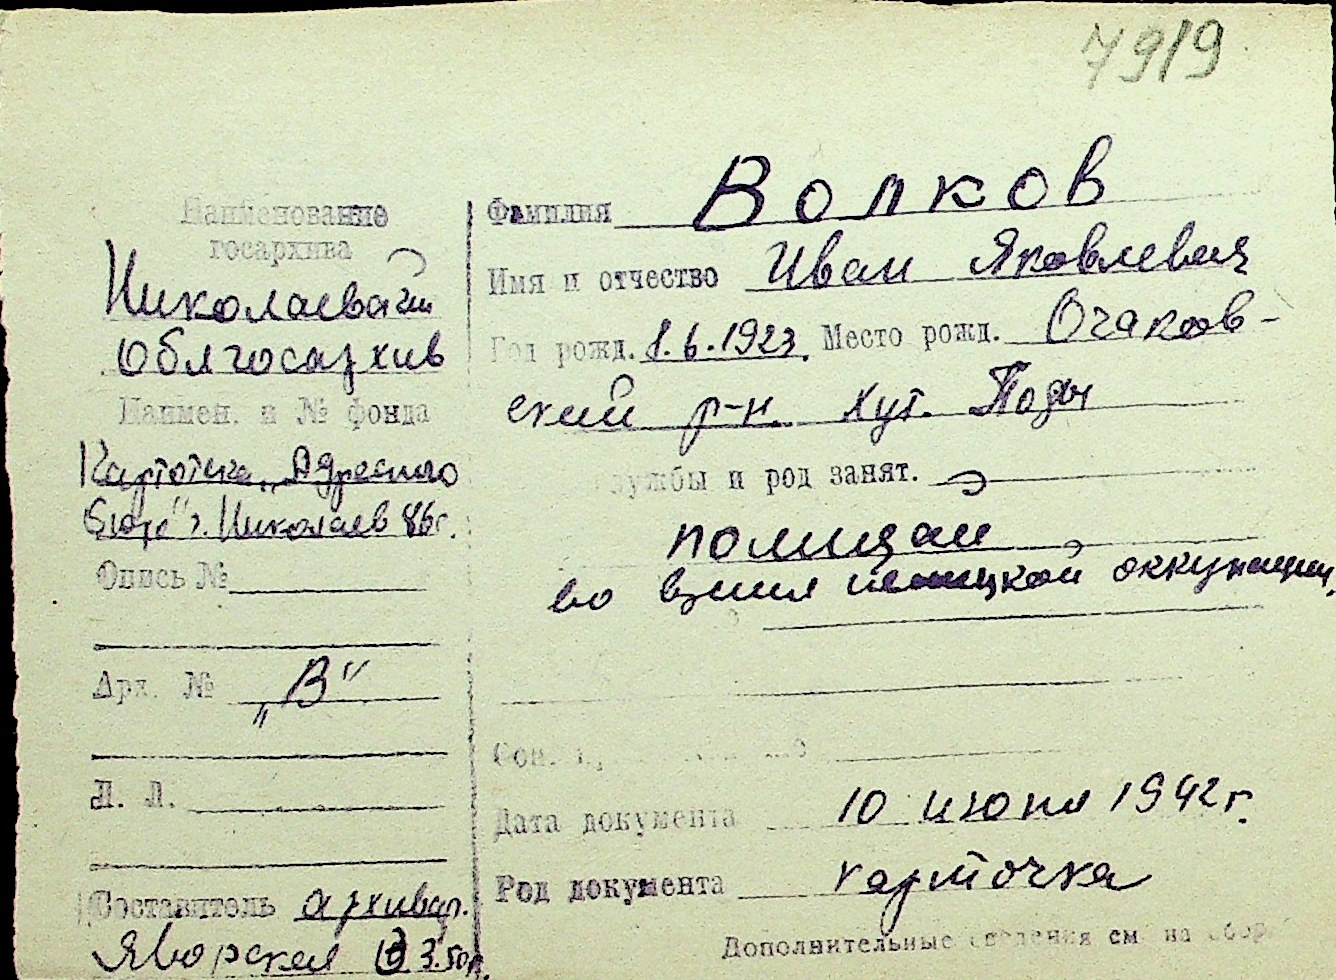 7919
Наименование
госархива
Николаевский
Облгосархив
Наимен. и № фонда
Картотека „Адресного
бюро" г. Николаев
Опись №
Арх. № „В"
Л. Л.
Составитель архивар.
Яворская
Фамилия Волков
Имя и отчество Иван Яковлевич
Год рожд. 1.6.1923. Место рожд. Очаков-
ский р-н. хут.
службы и род занят.
полицай
во время немецкой оккупации.
Дата документа 10 июня 1942 г.
Род документа карточка
Дополнительные сведения см на обор